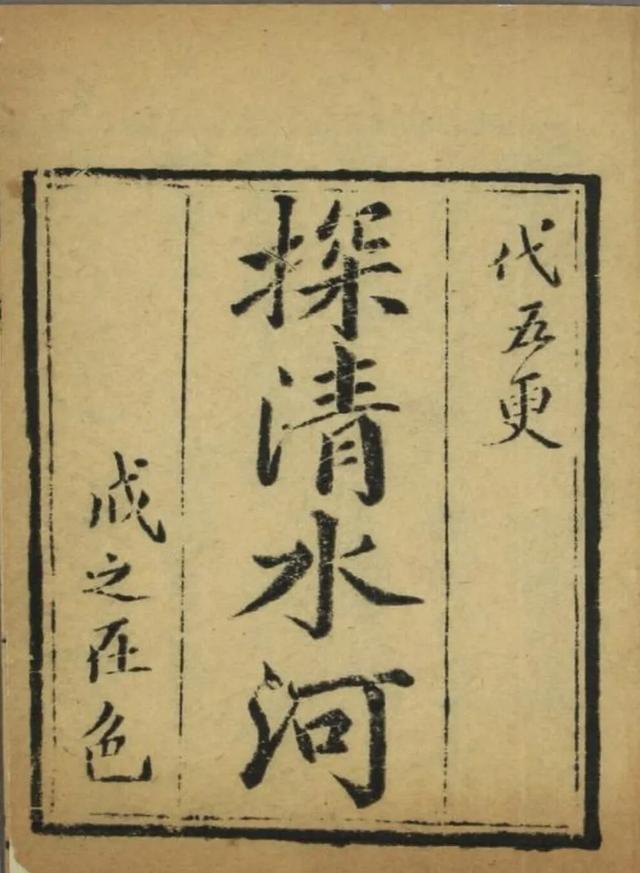 代五更
探清水河
戒之在色